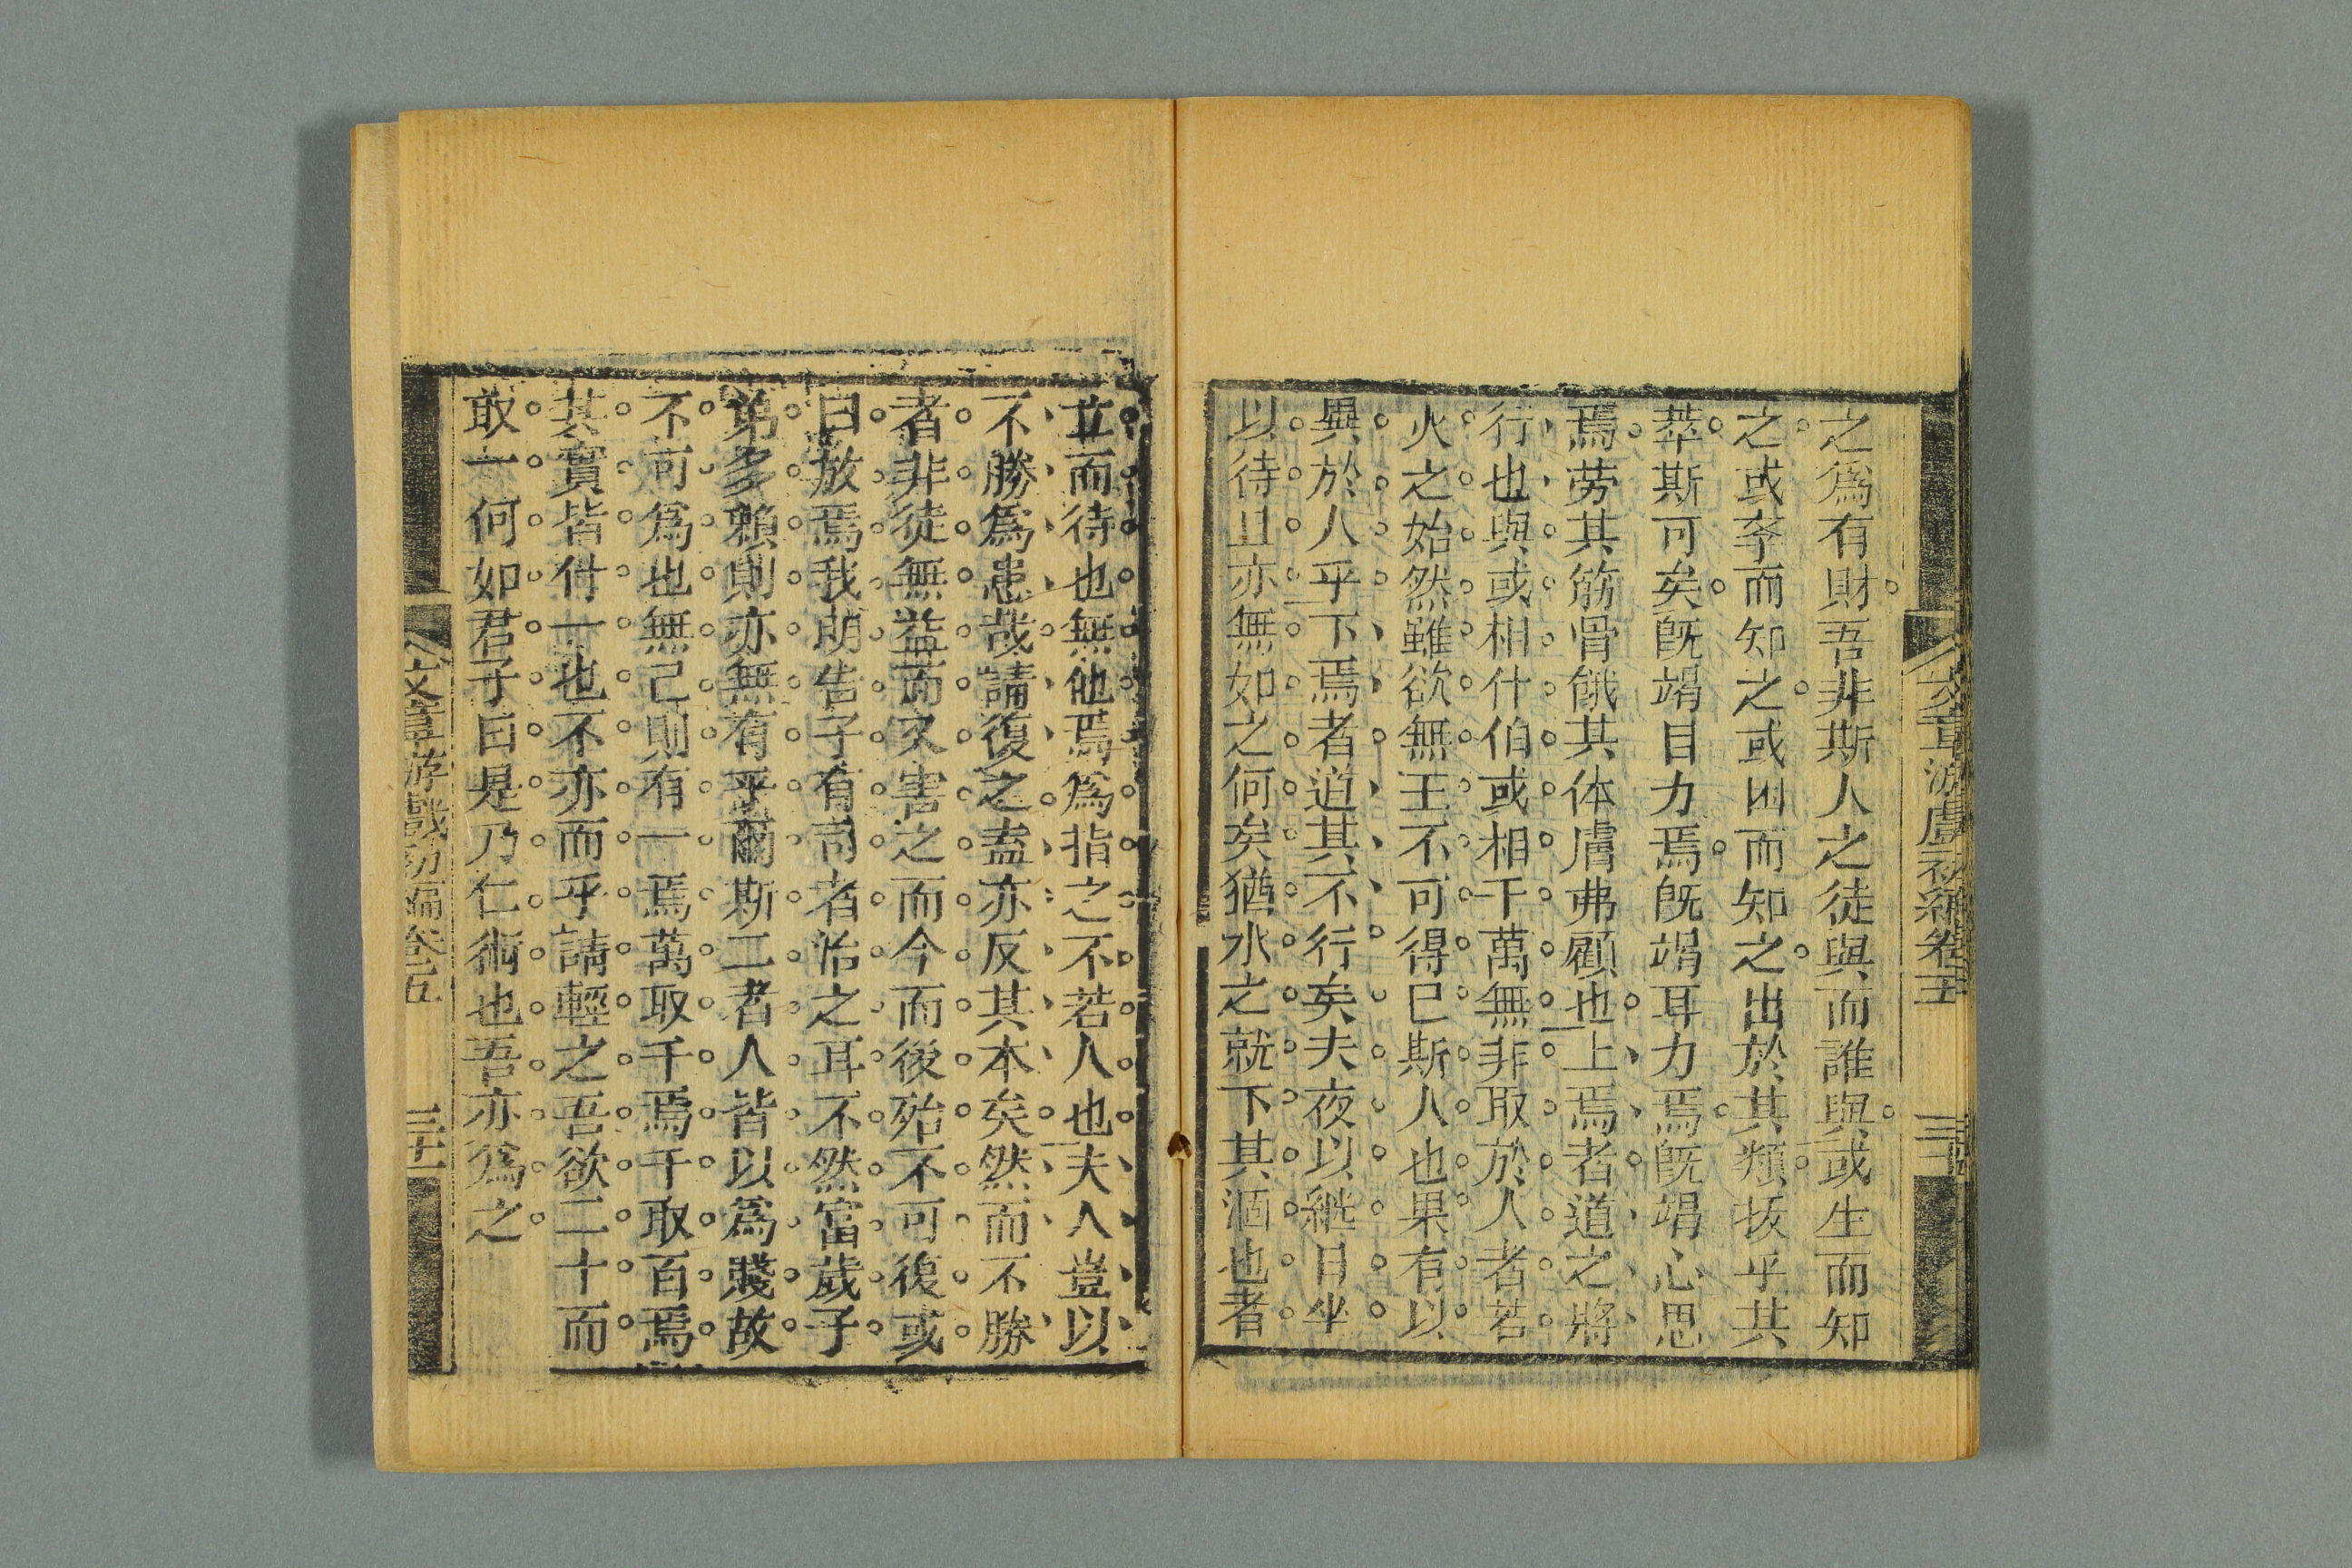 之爲有財吾非斯人之徒與而誰與或生而知
之或孛而知之或困而知之出於其類拔乎其
萃斯可矣旣竭目力焉旣竭耳力焉旣竭心思
焉劳其筋骨餓其体膚弗顧也上焉者道之將
行也與或相什伯或相千萬無非取於人者若
火之始然雖欲無王不可得已斯人也果有以
異於人乎下焉者道其不行矣夫夜以継日坐
以待旦亦無如之何矣猶水之就下其涸也者
文章游戲初編卷五
立而待也無他焉爲指之不若人也夫人豈以
不勝爲患哉請復之盍亦反其本矣然而不勝
者非徒無益而又害之而今而後殆不可復或
曰放焉我明告子有司者治之耳不然富歲子
弟多賴則亦無有乎爾斯二者人皆以爲賤故
不可爲也無已則有一焉萬取千焉千取百焉
其實皆什一也不亦而乎請輕之吾欲二十而
取一何如君子曰是乃仁術也吾亦爲之
文章游戲初編卷五
三十一